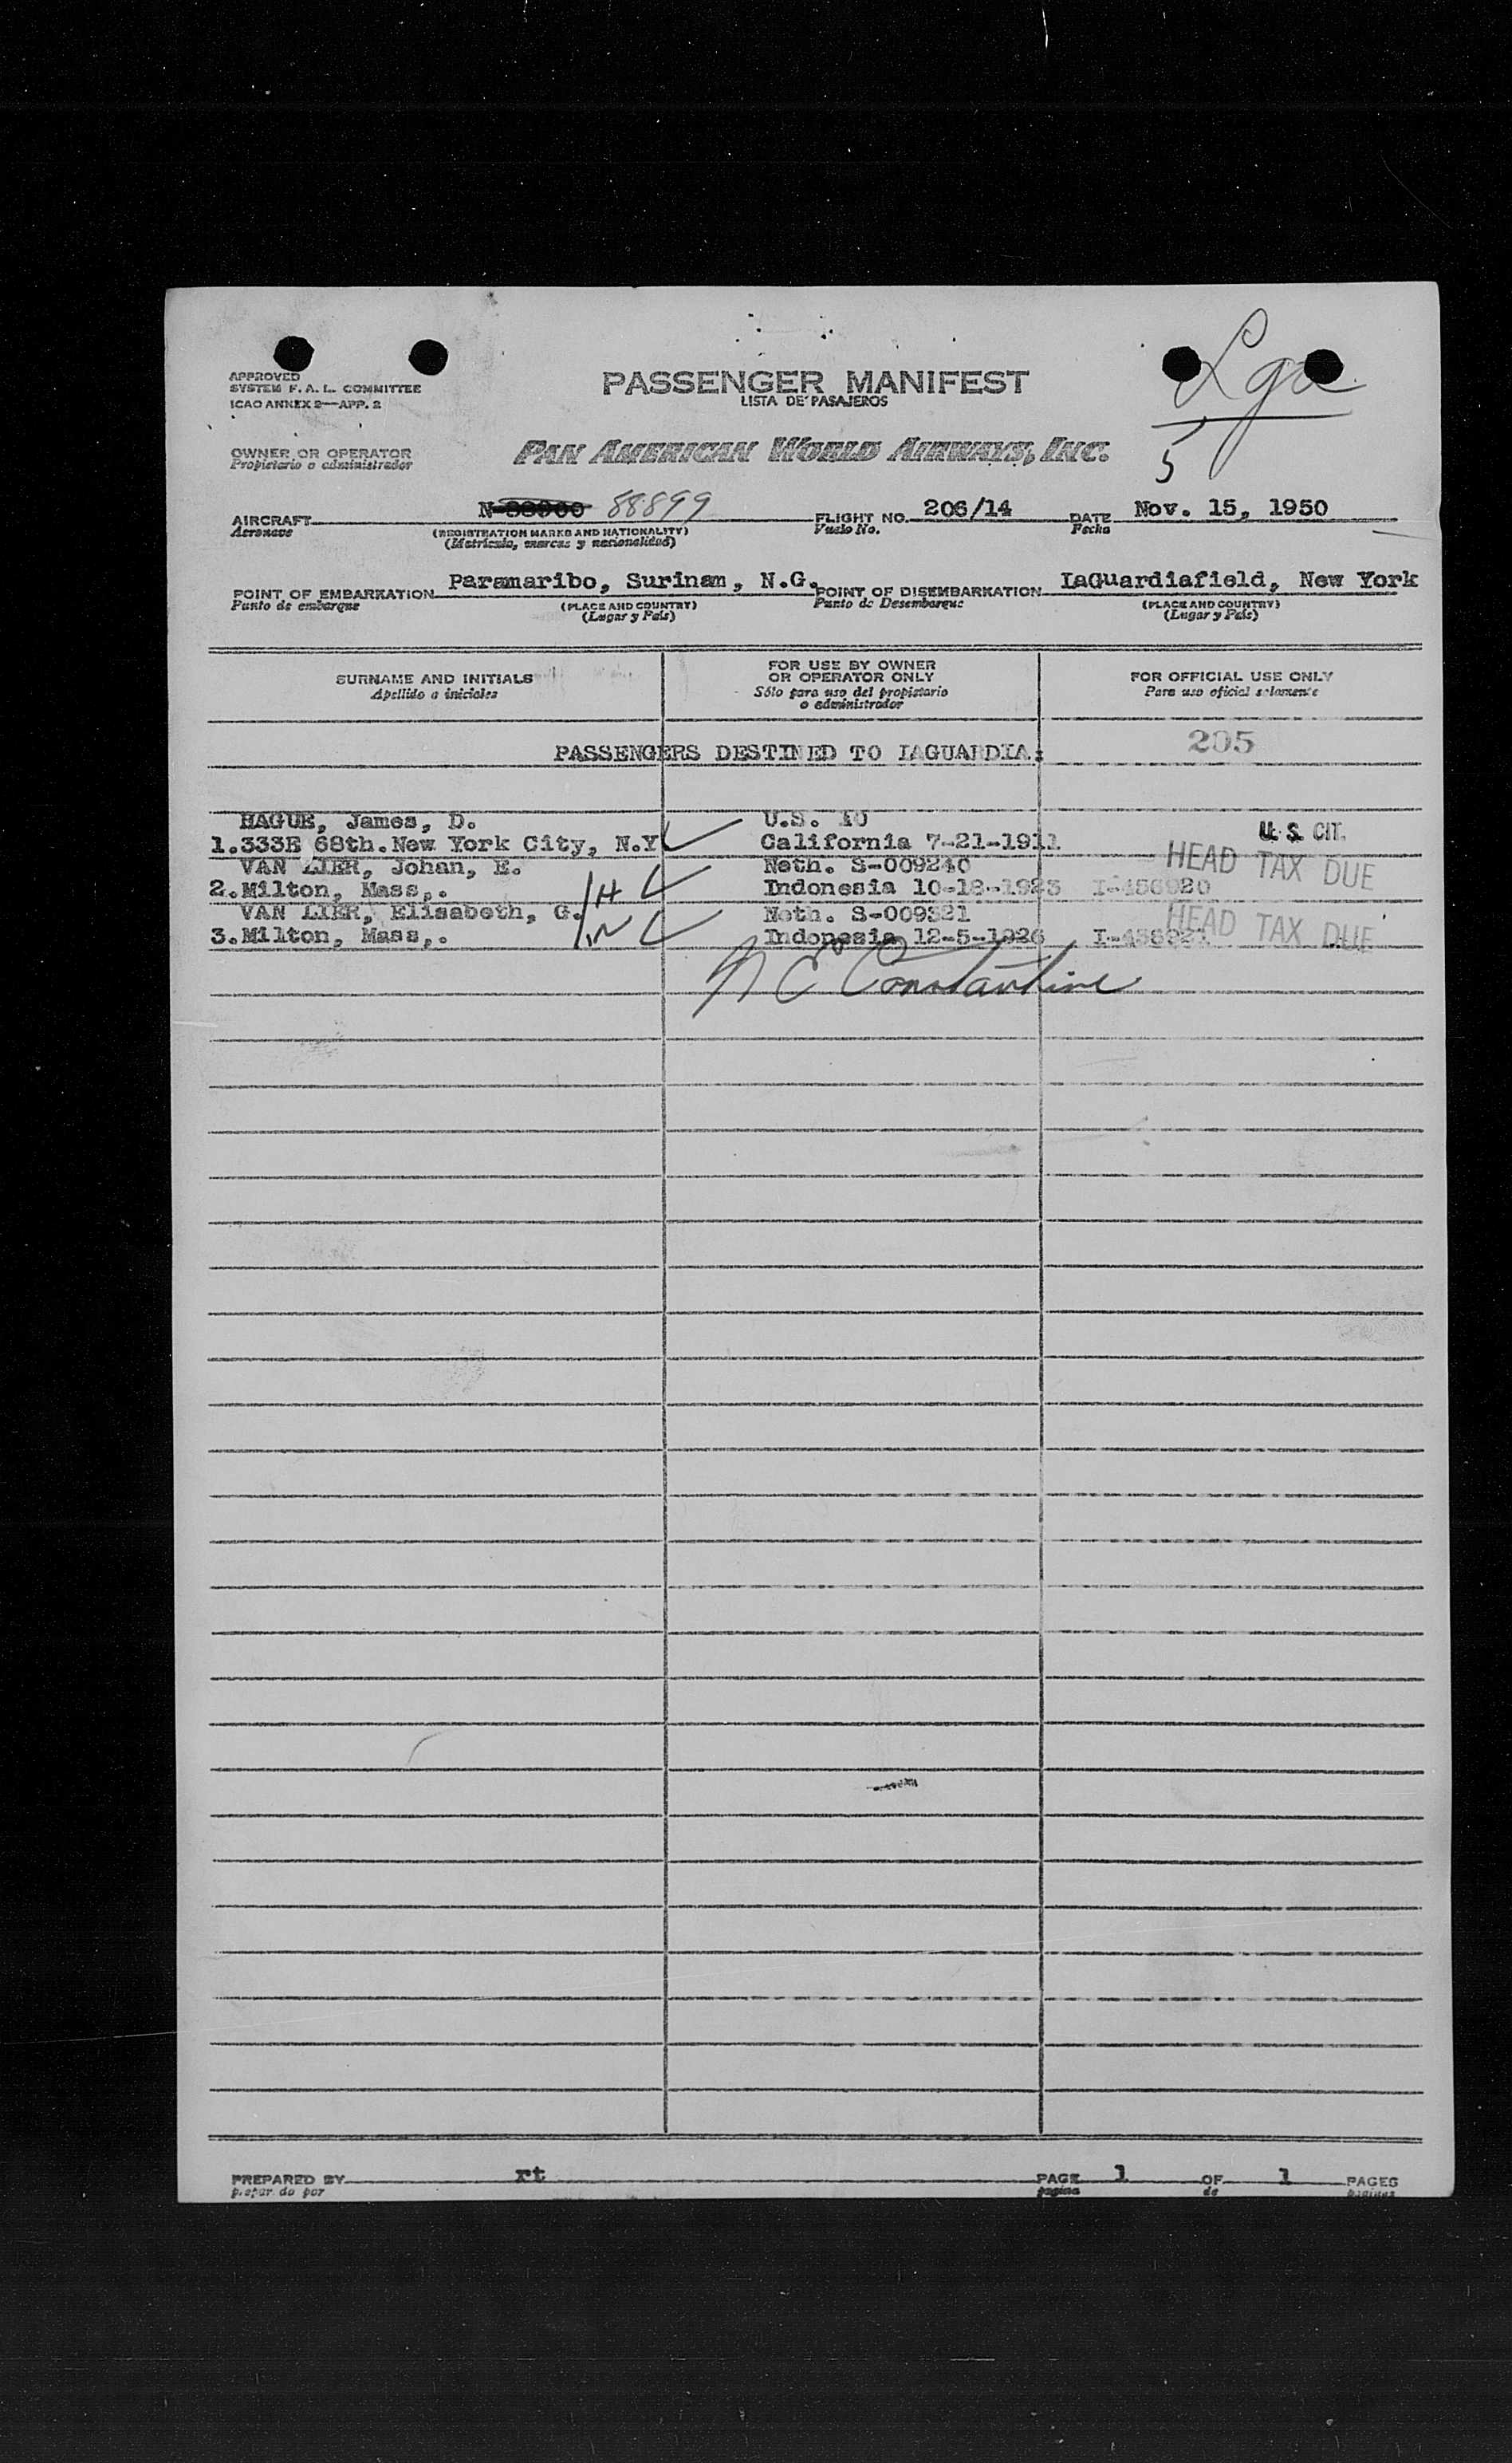 Lga
5
APPROVED
SYSTEM F. A. L. COMMITTEE
ICAO ANNEX 2—APP. 2
PASSENGER MANIFEST
LISTA DE PASAJEROS
OWNER OR OPERATOR
Propietario o administrador
PAN AMERICAN WORLD AIRWAYS, INC.
AIRCRAFT N-88900 88899 FLIGHT NO. 206/14 DATE Nov. 15, 1950
Aeronave (REGISTRATION MARKS AND NATIONALITY) Vuelo No. Fecha
(Matrícula, marcas y nacionalidad)
POINT OF EMBARKATION Paramaribo, Surinam, N.G. POINT OF DISEMBARKATION LaGuardiafield, New York
Punto de embarque (PLACE AND COUNTRY) Punto de Desembarque (PLACE AND COUNTRY)
(Lugar y País) (Lugar y País)
SURNAME AND INITIALS
Apellido a iniciales
FOR USE BY OWNER
OR OPERATOR ONLY
Sólo para uso del propietario
o administrador
FOR OFFICIAL USE ONLY
Para uso oficial solamente
PASSENGERS DESTINED TO LAGUARDIA: 205
HAGUE, James, D. U.S. ID
1.333E 68th.New York City, N.Y California 7-21-1911 U. S. CIT.
VAN LIER, Johan, E. Neth. S-009240 HEAD TAX DUE
2.Milton, Mass,. Indonesia 10-18-1923 I-456920
VAN LIER, Elisabeth, G. Neth. S-009321 HEAD TAX DUE
3.Milton, Mass,. Indonesia 12-5-1926 I-456921
N E Constantine
PREPARED BY rt PAGE 1 OF 1 PAGES
prepar do por pagina de paginas